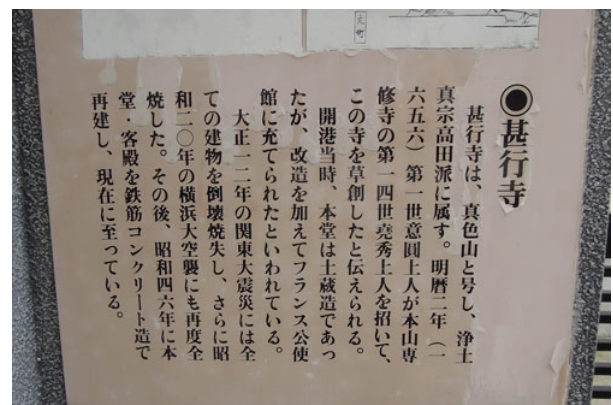 ◉甚行寺
甚行寺は、真色山と号し、浄土
真宗高田派に属す。明暦二年（一
六五六）第一世意圓上人が本山専
修寺の第一四世堯秀上人を招いて、
この寺を草創したと伝えられる。
開港当時、本堂は土蔵造であっ
たが、改造を加えてフランス公使
館に充てられたといわれている。
大正一二年の関東大震災には全
ての建物を倒壊焼失し、さらに昭
和二〇年の横浜大空襲にも再度全
焼した。その後、昭和四六年に本
堂・客殿を鉄筋コンクリート造で
再建し、現在に至っている。